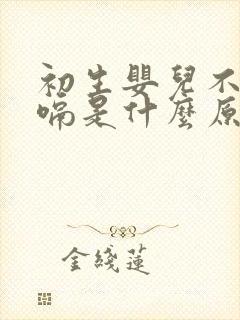 初生嬰兒不
嗝是什麼原
金綫蓮